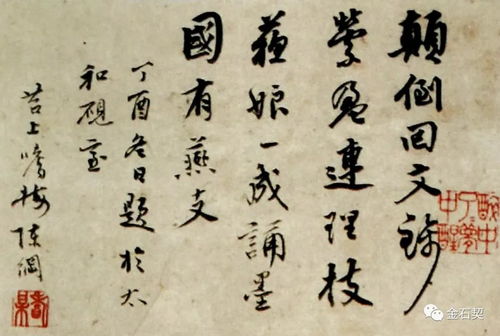 顛倒回文錦
縈盈連理枝
蘇娘一成誦墨
國有燕支
丁酉冬日題於太
和硯室
苕上嗜梅陳綱
金石契